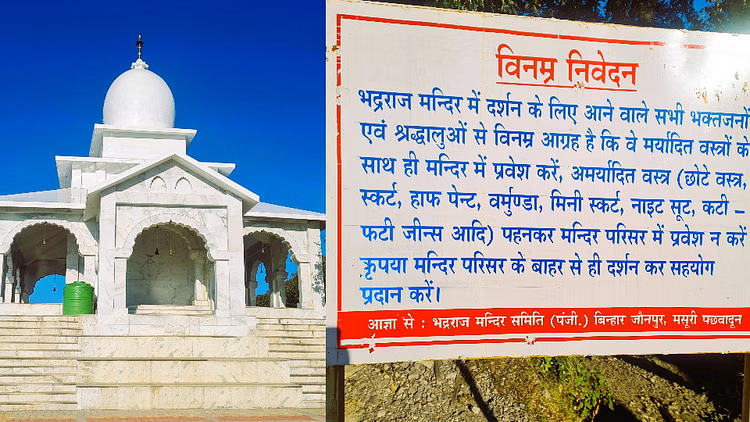 विनम्र निवेदन
भद्रराज मन्दिर में दर्शन के लिए आने वाले सभी भक्तजनों
एवं श्रद्धालुओं से विनम्र आग्रह है कि वे मर्यादित वस्त्रों के
साथ ही मन्दिर में प्रवेश करें, अमर्यादित वस्त्र (छोटे वस्त्र,
स्कर्ट, हाफ पेन्ट, वर्मुण्डा, मिनी स्कर्ट, नाइट सूट, कटी –
फटी जीन्स आदि) पहनकर मन्दिर परिसर में प्रवेश न करें
कृपया मन्दिर परिसर के बाहर से ही दर्शन कर सहयोग
प्रदान करें।
आज्ञा से : भद्रराज मन्दिर समिति (पंजी.) बिन्हार जौनपुर, मसूरी पछवादून